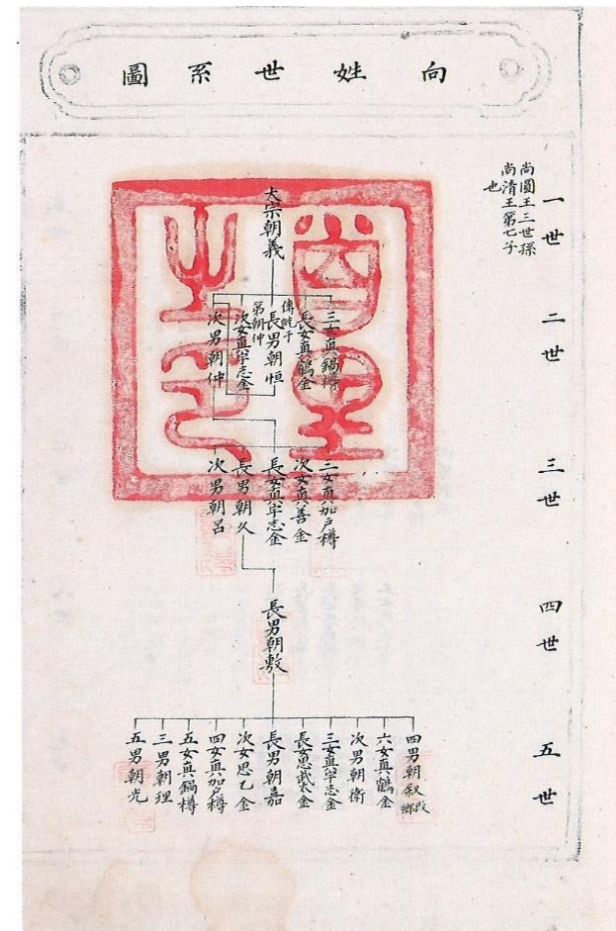 向姓世系圖
一世
尚圓王三世孫
尚清王第七子
也
大宗朝義
二世
三女真鍋樽
長女真鶴金
長男朝恒
傳継于
第朝仲
次女真牛志金
次男朝仲
三世
三女真加戸樽
次女真善金
長女真牛志金
長男朝久
次男朝呂
四世
長男朝敷
五世
四男朝叙
六女真鶴金
次男朝衛
三女真牛志金
長女思武太金
長男朝嘉
次女思乙金
四女真加戸樽
五女真鍋樽
三男朝理
五男朝光
首里之印